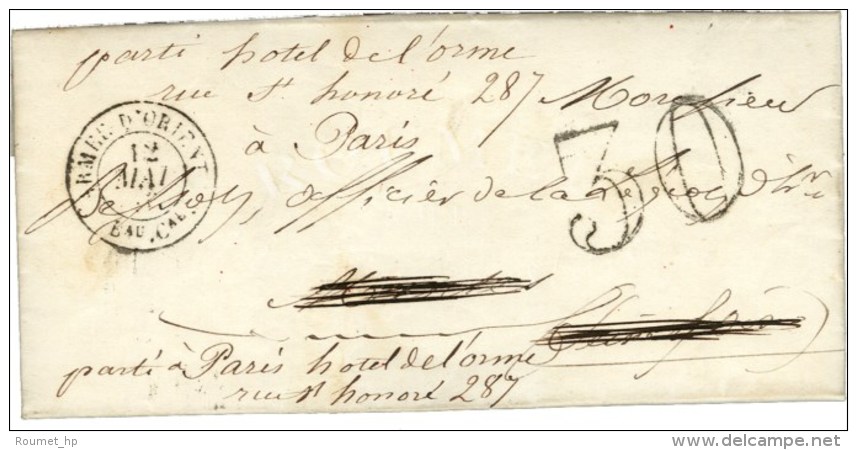 parti hotel de l'orme
rue St honoré 287 Monsieur
à Paris
officier de la legion d'hr
parti à Paris hotel de l'orme
rue St honoré 287
ARMEE D'ORIENT
12
MAI
BAU. CAL.
30
Roumet_hp
delcampe.net